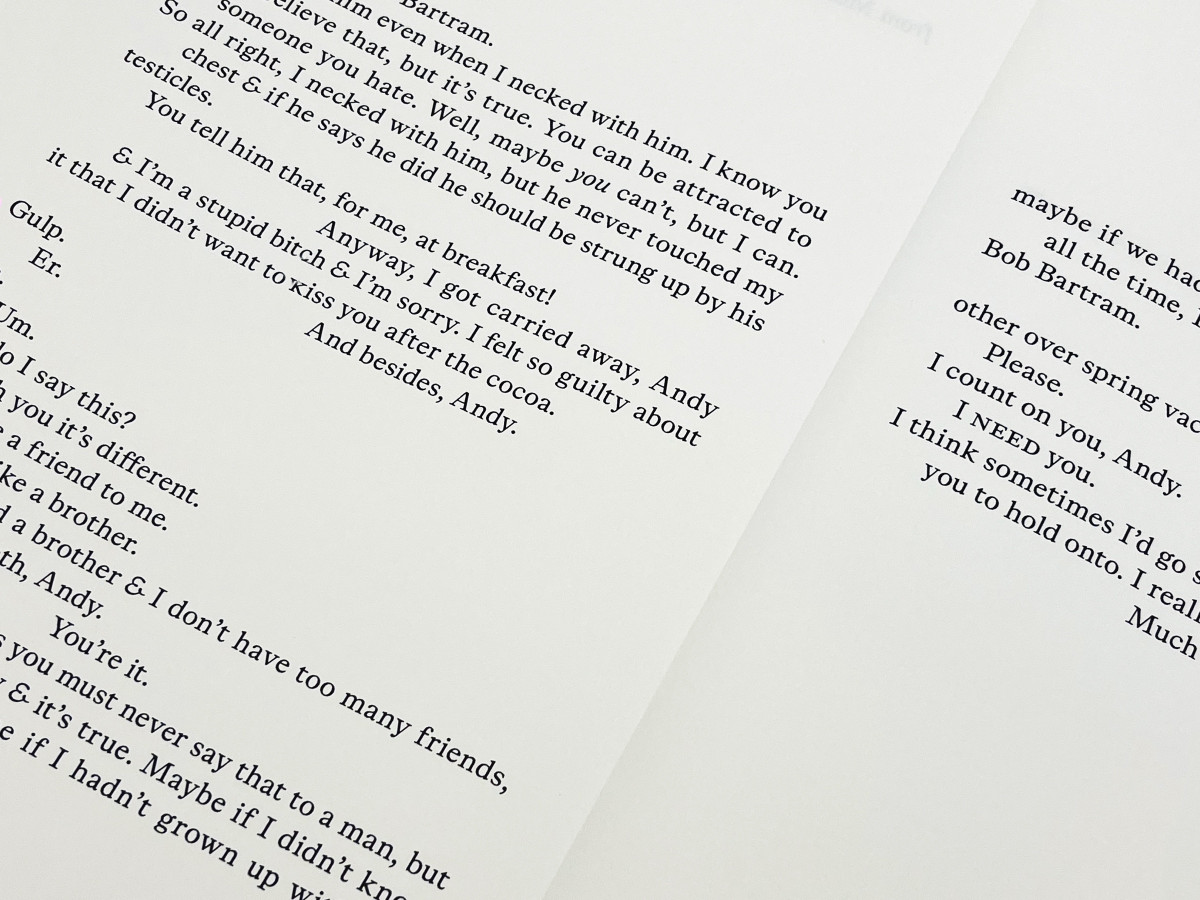 Bartram.
him even when I necked with him. I know you
believe that, but it's true. You can be attracted to
someone you hate. Well, maybe you can't, but I can.
So all right, I necked with him, but he never touched my
chest & if he says he did he should be strung up by his
testicles.
You tell him that, for me, at breakfast!
Anyway, I got carried away, Andy
& I'm a stupid bitch & I'm sorry. I felt so guilty about
it that I didn't want to kiss you after the cocoa.
And besides, Andy.
Gulp.
Er.
Um.
do I say this?
you it's different.
a friend to me.
like a brother.
a brother & I don't have too many friends,
Andy.
You're it.
you must never say that to a man, but
& it's true. Maybe if I didn't
if I hadn't grown up
maybe if we had
all the time,
Bob Bartram.
other over spring
Please.
I count on you, Andy.
I NEED you.
I think sometimes I'd go
you to hold onto. I
Much